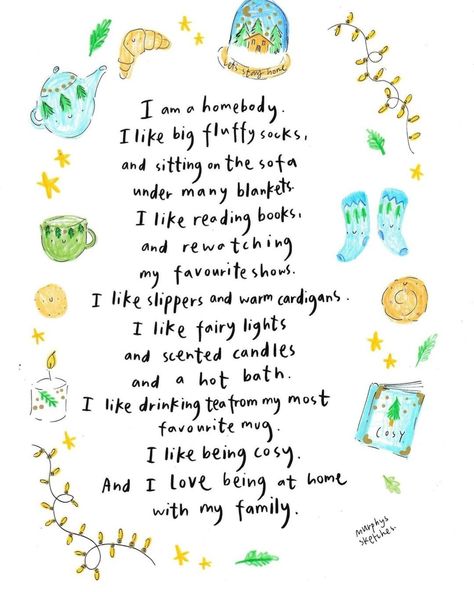 Let's stay home
I am a homebody.
I like big fluffy socks,
and sitting on the sofa
under many blankets.
I like reading books,
and rewatching
my favourite shows.
I like slippers and warm cardigans.
I like fairy lights
and scented candles
and a hot bath.
I like drinking tea from my most
favourite mug.
I like being cosy.
And I LOVE being at home
with my family.
COSY
murphys
sketches